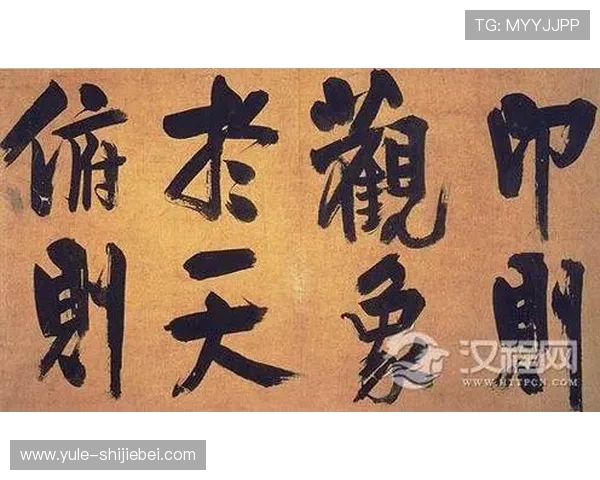 卬則
觀象
於天
俯則
TG: MYYJJPP
汉程网
WWW.HTTPCN.COM
www.yule-shijiebei.com